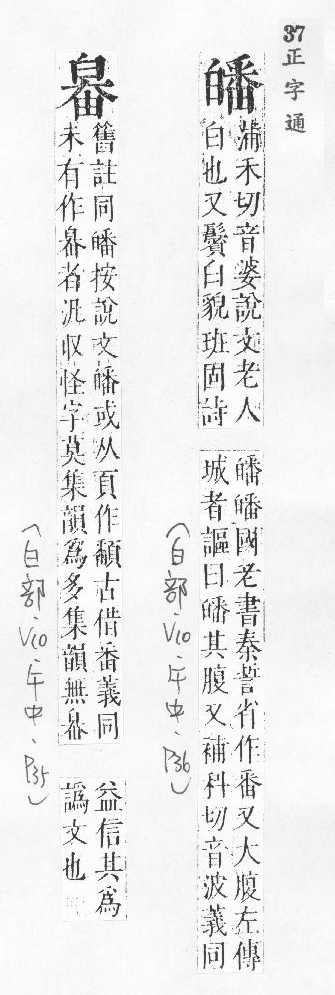 37
正字通
皤
蒲禾切音婆說文老人
白也又鬢白貌班固詩
皤皤國老書秦誓省作番又大腹左傳
城者謳曰皤其腹又補科切音波義同
(白部、V10、午中、P36)
舊註同皤按說文皤或从頁作𩕏古借番義同
未有作者汎収怪字莫集韻爲多集韻無
益信其爲
譌文也
(白部、V10、午中、P35)